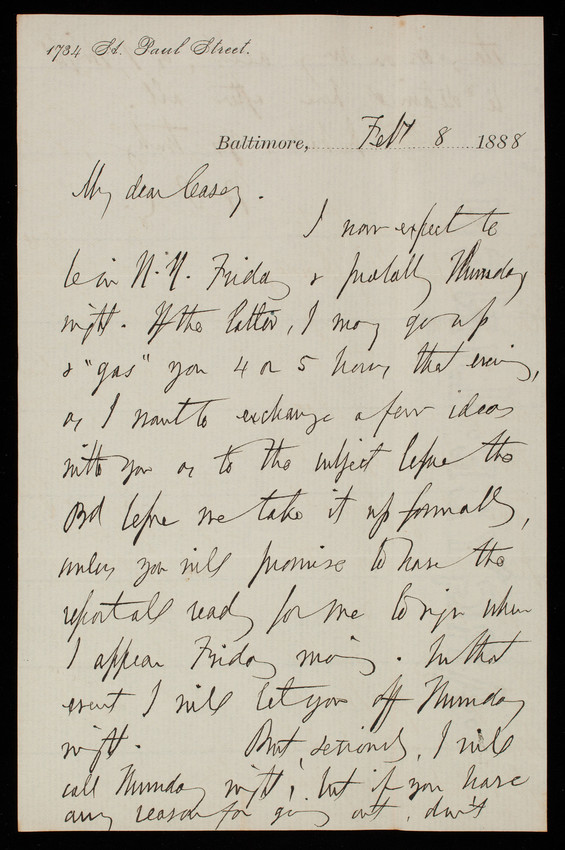 1734 St. Paul Street.
Baltimore, Feb 8 1888
My dear Casey.
I now expect to
be in N.Y. Friday & probably Thursday
night. If the latter, I may go up
& "gas" you 4 or 5 hours that evening,
as I want to exchange a few ideas
with you as to the subject before the
Bd before we take it up formally,
unless you will promise to have the
report all ready for me to sign when
I appear Friday morning. In that
event I will let you off Thursday
night. But, seriously, I will
call Thursday night; but if you have
any reason for going out, don't